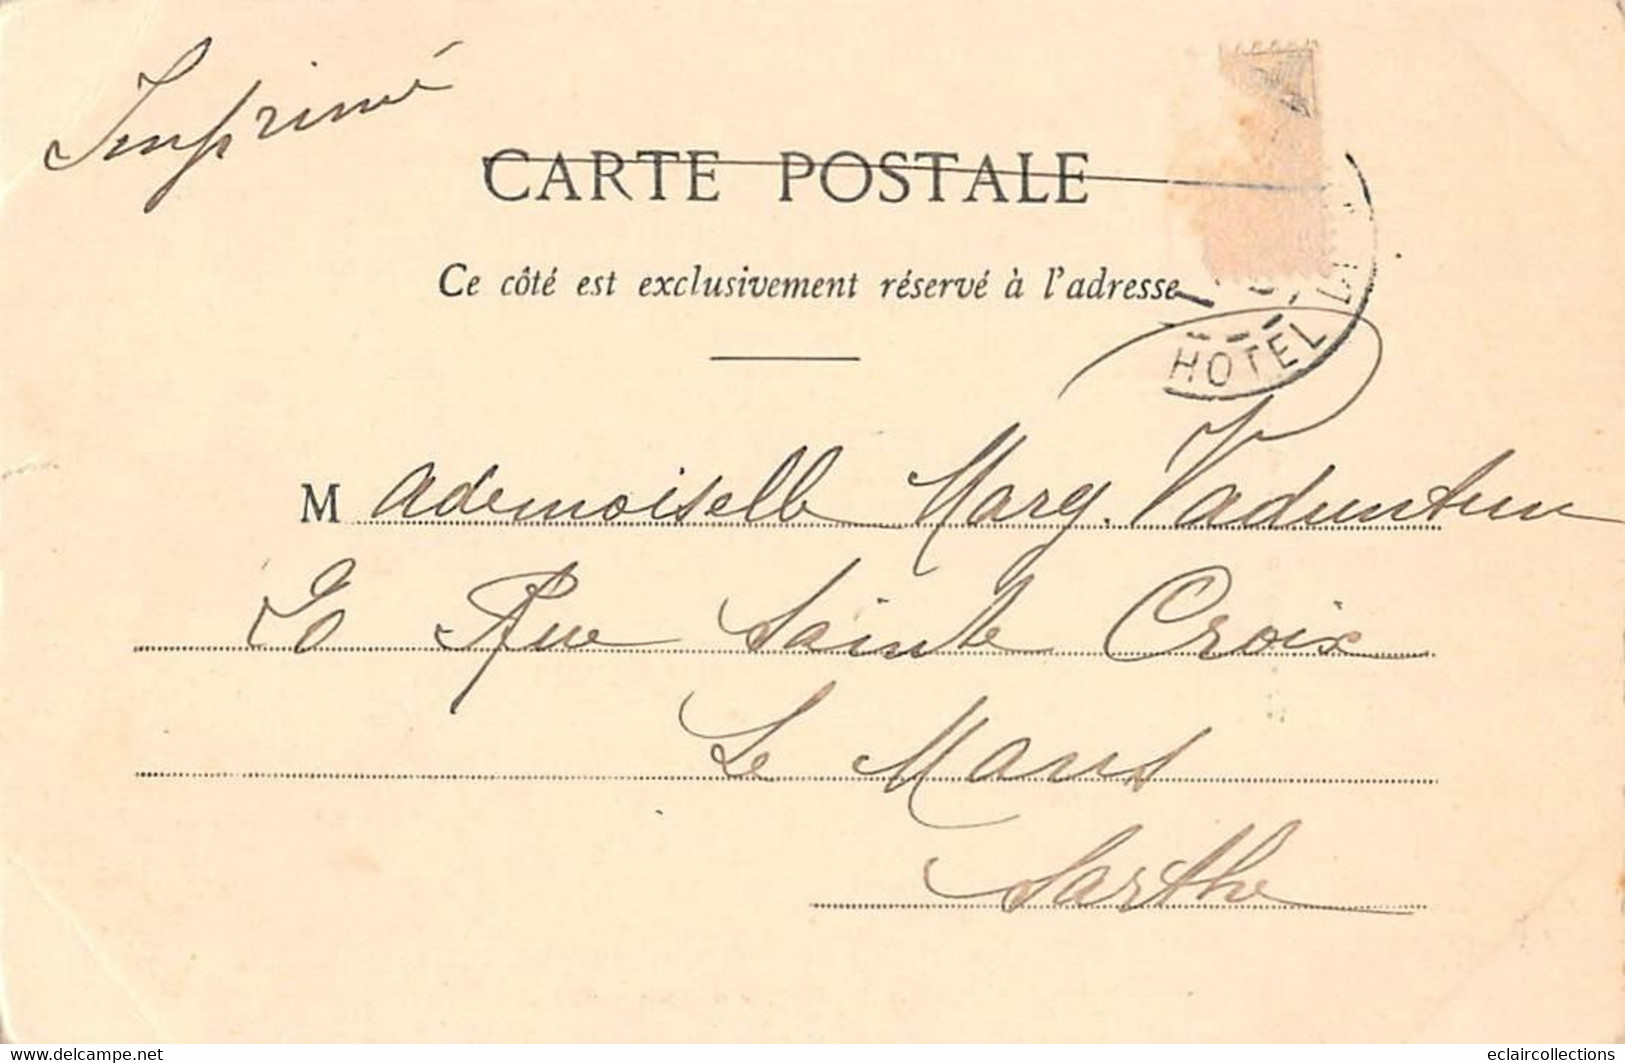 Imprimé
CARTE POSTALE
Ce côté est exclusivement réservé à l'adresse
HOTEL
Mademoiselle Marg.
Rue Sainte Croix
Le Mans
Sarthe
www.delcampe.net
eclaircollections